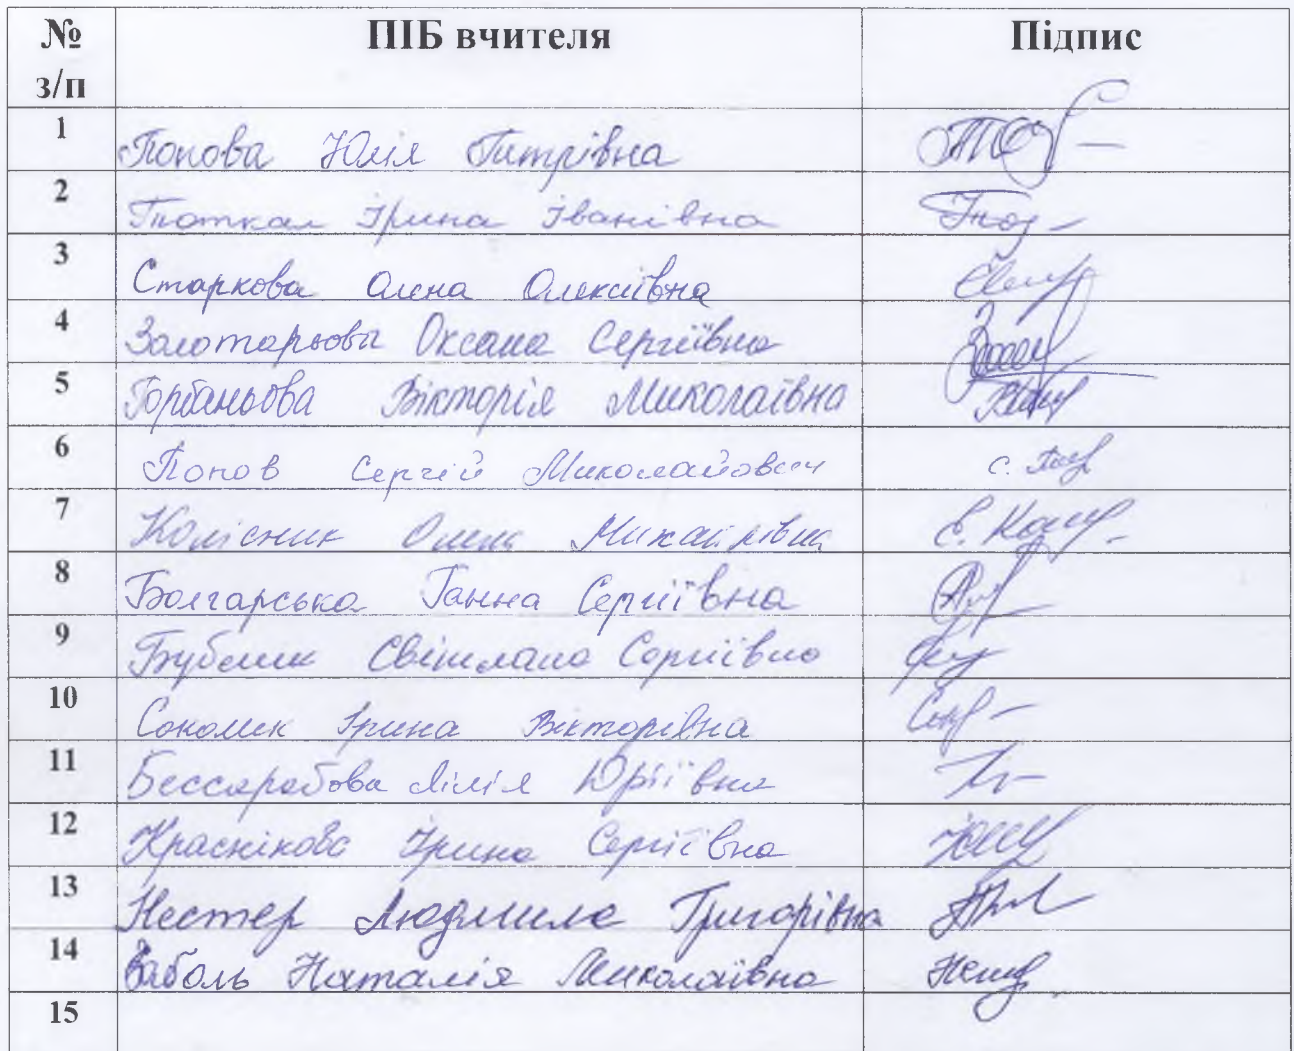 № з/п ПІБ вчителя Підпис
1 Попова Юлія Дмитрівна
2 Ірина Іванівна
3 Старкова Олена Олексіївна
4 Золотарьова Оксана Сергіївна
5 Горбаньова Вікторія Миколаївна
6 Попов Сергій Миколайович С.
7 Колісник Олена Михайлівна Е.
8 Болгарська Ганна Сергіївна
9 Бублик Світлана Сергіївна
10 Соколик Ірина Вікторівна
11 Бессарабова Лілія Юріївна
12 Краснікова Ірина Сергіївна
13 Нестер Людмила Григорівна
14 Наталія Миколаївна
15